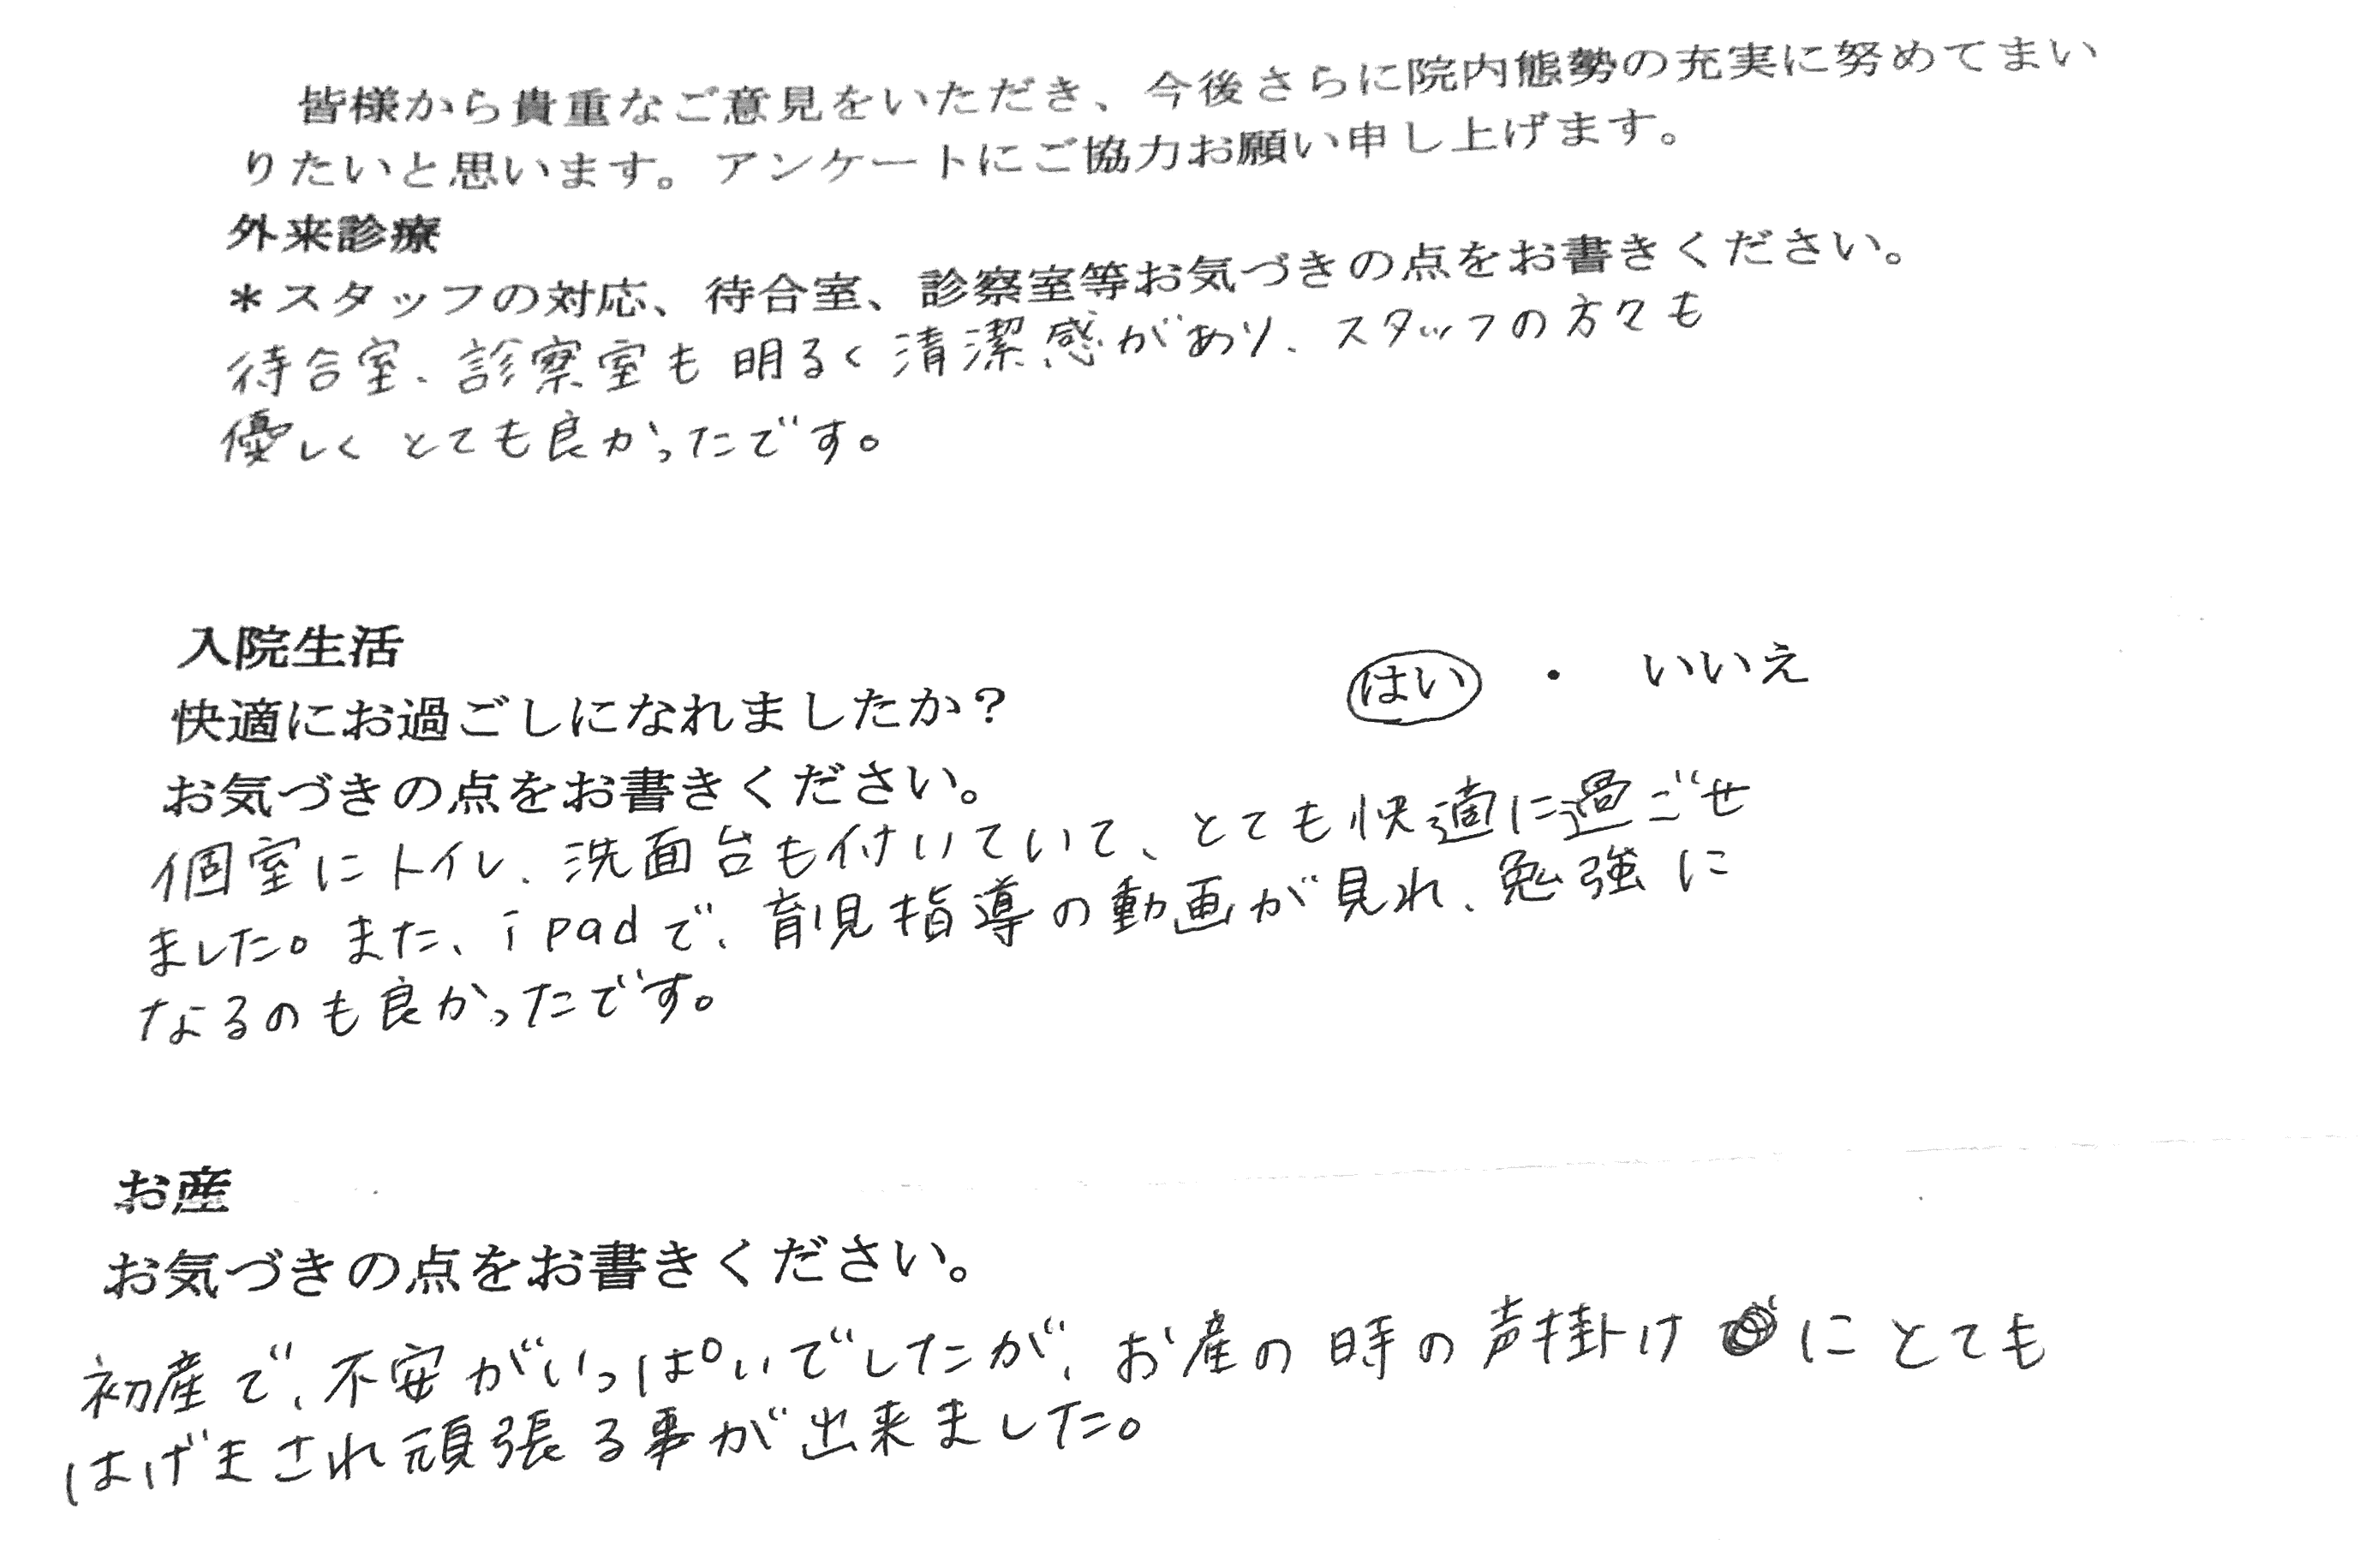 皆様から貴重なご意見をいただき、今後さらに院内態勢の充実に努めてまい
りたいと思います。アンケートにご協力お願い申し上げます。
外来診療
＊スタッフの対応、待合室、診察室等お気づきの点をお書きください。
待合室、診察室も明るく清潔感があり、スタッフの方々も
優しくとても良かったです。
入院生活
快適にお過ごしになれましたか？ はい ・ いいえ
お気づきの点をお書きください。
個室にトイレ、洗面台も付いていて、とても快適に過ごせ
ました。また、ipadで、育児指導の動画が見れ、勉強に
なるのも良かったです。
お産
お気づきの点をお書きください。
初産で、不安がいっぱいでしたが、お産の時の声掛けにとても
はげまされ頑張る事が出来ました。